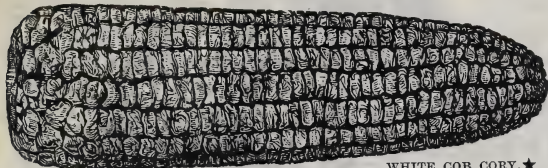 WHITE COB CORY.★